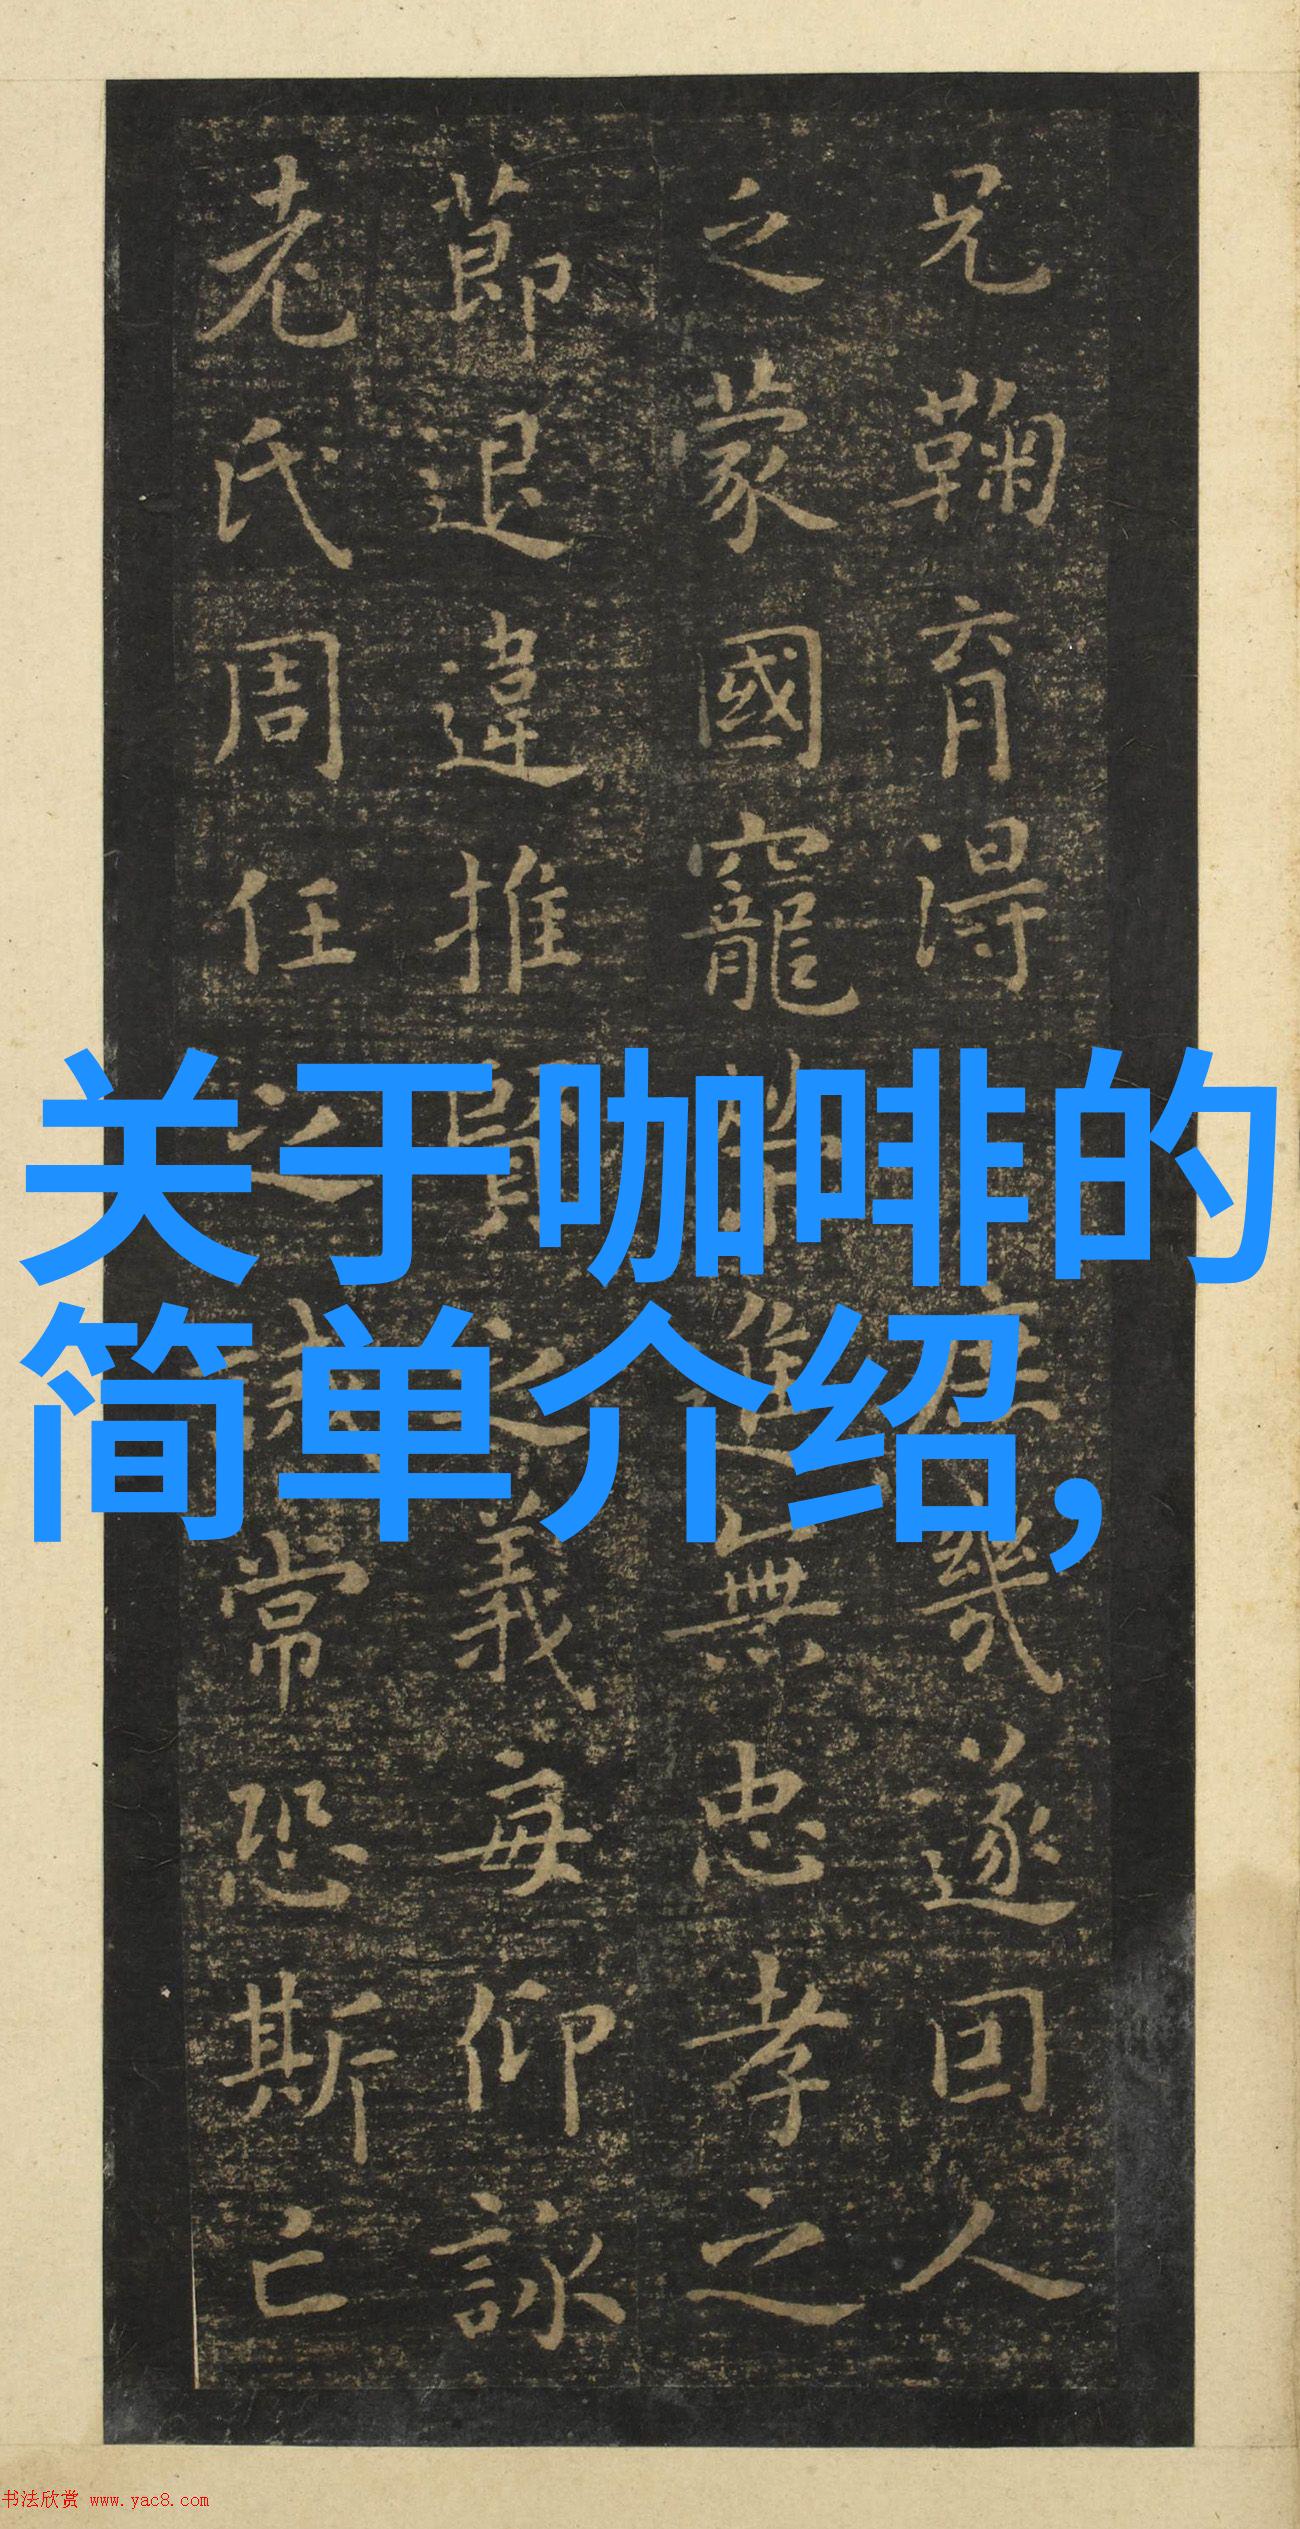 兄鞠育得庶幾遂因人
之蒙國寵進無忠孝之
節退違推賢之義每仰詠
老氏周任之誡常恐斯亡
关于咖啡的
简单介绍,
书法欣赏 www.yac8.com